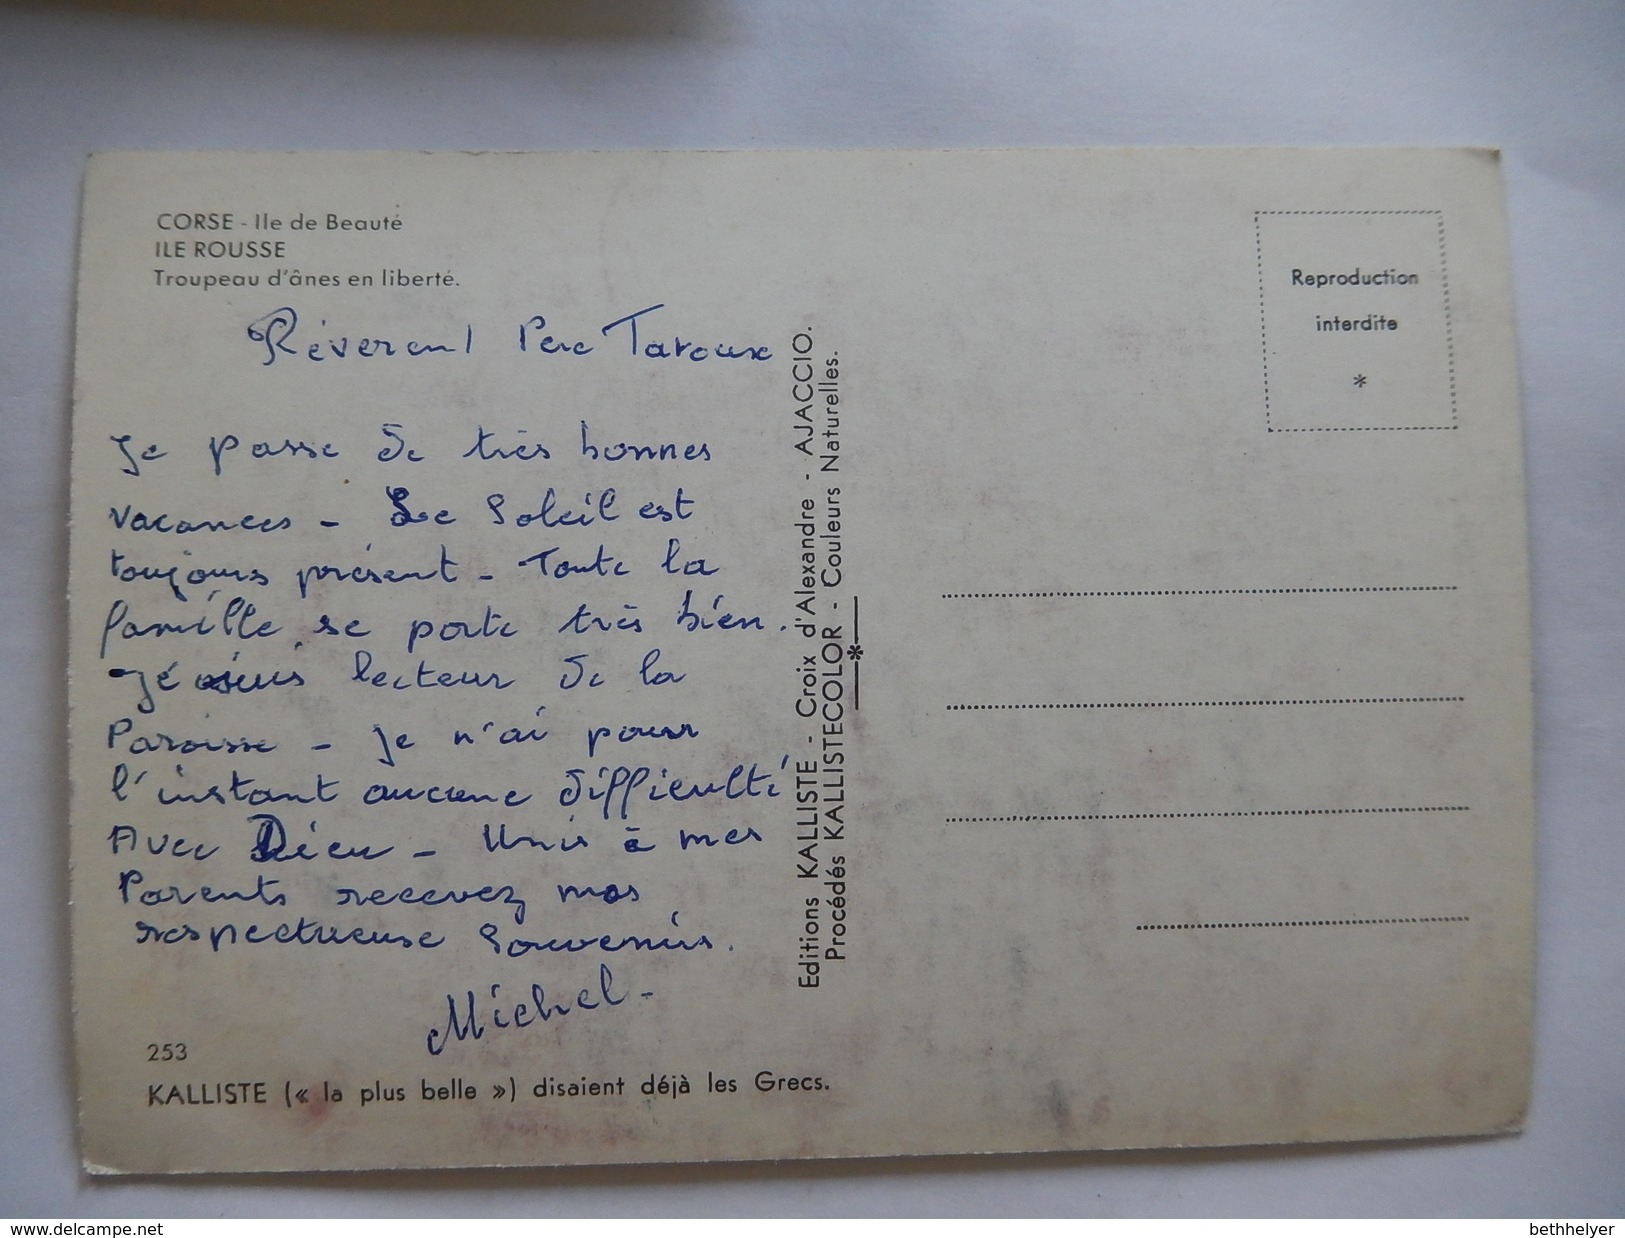 CORSE - Ile de Beauté
ILE ROUSSE
Troupeau d'ânes en liberté.
Réverend Père Taroux
Je passe de très bonnes
vacances - Le Soleil est
toujours présent - Toute la
famille se porte très bien.
Je suis lecteur de la
Paroisse - Je n'ai pour
l'instant aucune difficulté
Avec Dieu - Unis à mes
Parents recevez mes
respectueuse Souvenirs.
Michel -
253
KALLISTE (« la plus belle ») disaient déjà les Grecs.
Editions KALLISTE - Croix d'Alexandre - AJACCIO.
Procédés KALLISTECOLOR - Couleurs Naturelles.
Reproduction
interdite
*
www.delcampe.net
bethhelyer